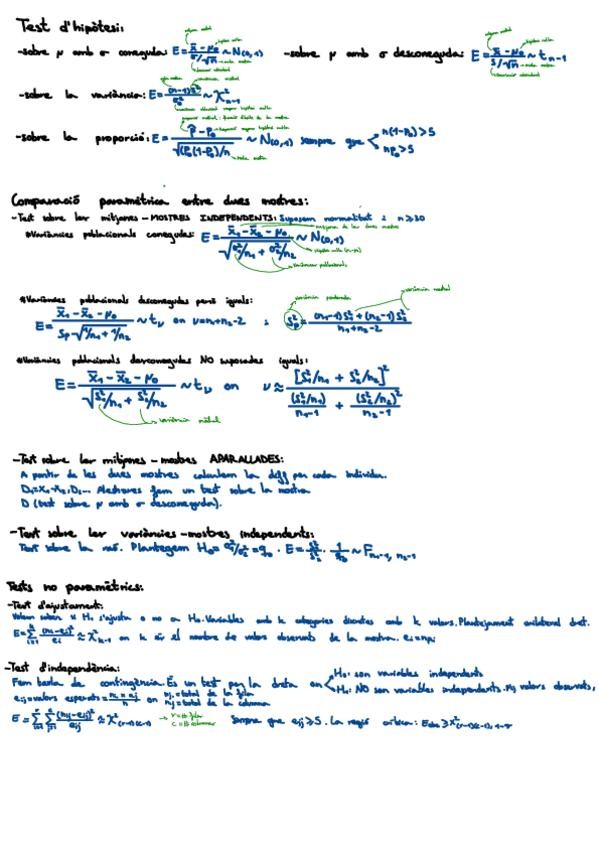 Test d'hipòtesi:
-sobre μ amb σ coneguda: E = (x̄ - μ₀)/(σ/√n) ~ N(0,1)
-sobre μ amb σ desconeguda: E = (x̄ - μ₀)/(s/√n) ~ tₙ₋₁
-sobre la variància: E = (n-1)s²/σ₀² ~ χ²ₙ₋₁
-sobre la proporció: E = (p̂ - p₀)/√(p₀(1-p₀)/n) ~ N(0,1) sempre que n(1-p₀)>5
np₀>5
Comparació paramètrica entre dues mostres:
-Test sobre les mitjanes - MOSTRES INDEPENDENTS: Suposem normalitat i n≥30
*Variàncies poblacionals conegudes: E = (x̄₁ - x̄₂ - μ₀)/√(σ₁²/n₁ + σ₂²/n₂) ~ N(0,1)
variàncies poblacionals
*Variàncies poblacionals desconegudes però iguals:
E = (x̄₁ - x̄₂ - μ₀)/(Sp·√(1/n₁ + 1/n₂)) ~ tᵥ on ν=n₁+n₂-2 i S²p = ((n₁-1)S₁² + (n₂-1)S₂²)/(n₁+n₂-2)
variància ponderada
variància mostral
*Variàncies poblacionals desconegudes NO suposades iguals:
E = (x̄₁ - x̄₂ - μ₀)/√(S₁²/n₁ + S₂²/n₂) ~ tᵥ on ν ≈ [S₁²/n₁ + S₂²/n₂]²/((S₁²/n₁)²/(n₁-1) + (S₂²/n₂)²/(n₂-1))
variància mostral
-Test sobre les mitjanes - mostres APARALLADES:
A partir de les dues mostres calculem la diff per cada individu.
D₁=X₁-X₂, D₂... Aleshores fem un test sobre la mostra
D (test sobre μ amb σ desconeguda).
-Test sobre les variàncies - mostres independents:
Test sobre la raó. Plantegem H₀= σ₁²/σ₂² = q₀ . E = S₁²/S₂² · 1/q₀ ~ Fₙ₁₋₁, ₙ₂₋₁
Tests no paramètrics:
-Test d'ajustament:
Volem saber si H₀ s'ajusta o no a H₀. Variables amb k categories discretes amb k valors. Plantejament unilateral dret.
E = Σ (nᵢ-eᵢ)²/eᵢ ≈ χ²ₖ₋₁ on k és el nombre de valors observats de la mostra. eᵢ=npᵢ
-Test d'independència:
Fem taula de contingència. És un test per la dreta on H₀: són variables independents
H₁: NO són variables independents. nᵢⱼ valors observats,
eᵢⱼ=valors esperats = nᵢ · nⱼ/n on nᵢ = total de la fila
nⱼ = total de la columna
E = ΣΣ (nᵢⱼ-eᵢⱼ)²/eᵢⱼ ≈ χ²(r-1)(c-1) → r=# fila
c=# columnes
Sempre que eᵢⱼ≥5. La regió crítica: E_obs ≥ χ²(r-1)(c-1), 1-α